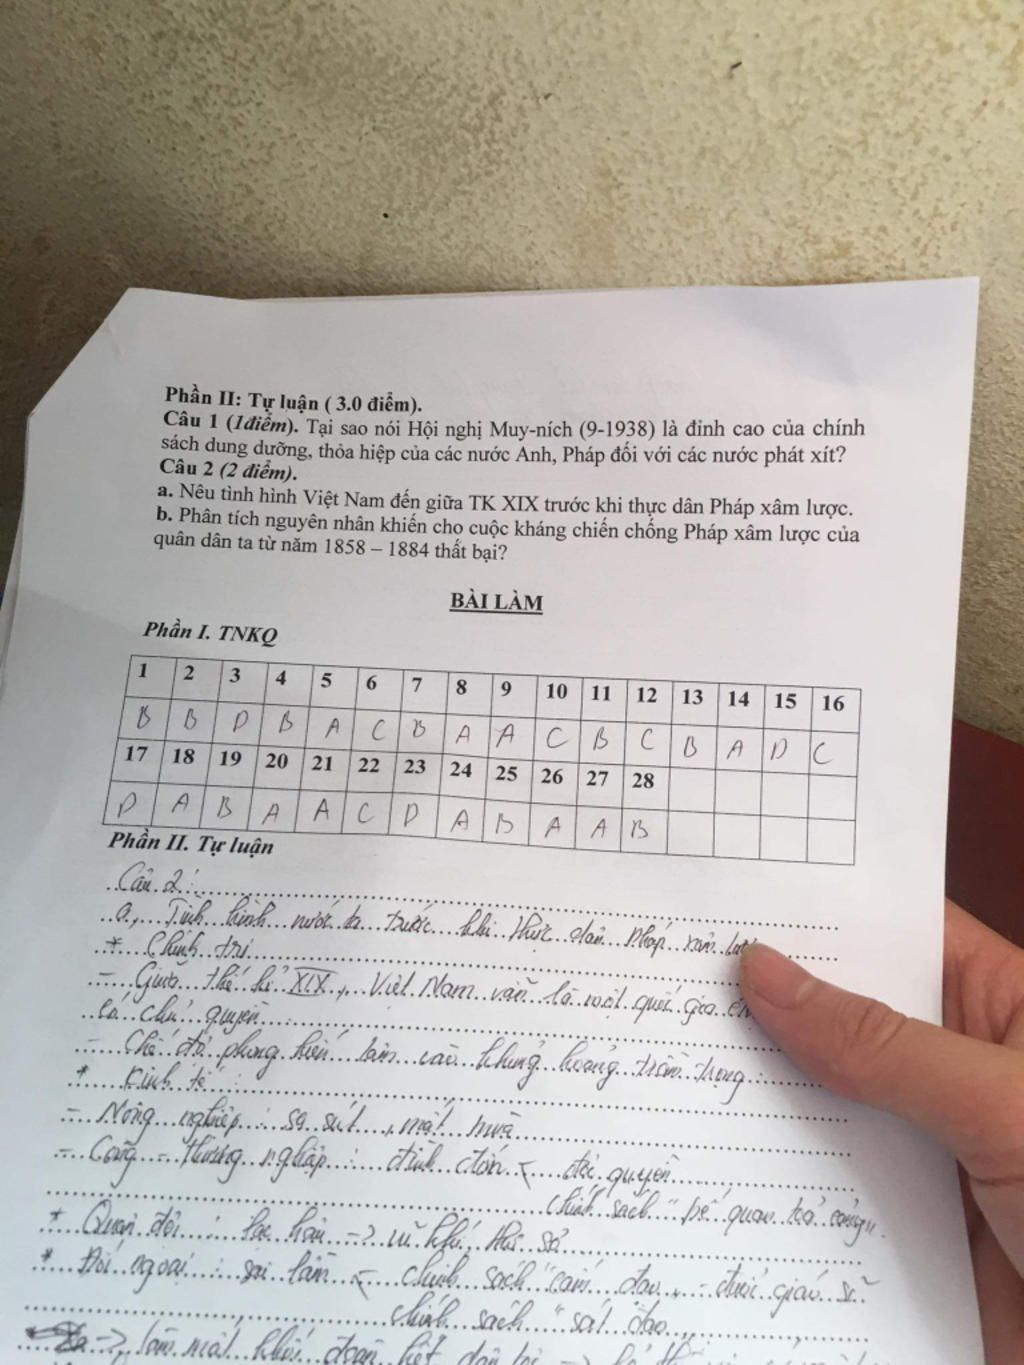 Phần II: Tự luận ( 3.0 điểm).
Câu 1 (1điểm). Tại sao nói Hội nghị Muy-ních (9-1938) là đỉnh cao của chính
sách dung dưỡng, thỏa hiệp của các nước Anh, Pháp đối với các nước phát xít?
Câu 2 (2 điểm).
a. Nêu tình hình Việt Nam đến giữa TK XIX trước khi thực dân Pháp xâm lược.
b. Phân tích nguyên nhân khiến cho cuộc kháng chiến chống Pháp xâm lược của
quân dân ta từ năm 1858 – 1884 thất bại?
BÀI LÀM
Phần I. TNKQ
1 2 3 4 5 6 7 8 9 10 11 12 13 14 15 16
B B D B A C B A A C B C B A D C
17 18 19 20 21 22 23 24 25 26 27 28
D A B A A C D A B A A B
Phần II. Tự luận
Câu 2:
a, Tình hình nước ta trước khi thực dân Pháp xâm
* Chính trị
- Giữa thế kỉ XIX, Việt Nam vẫn là một quốc gia
có chủ quyền
- Chế độ phong kiến lâm vào khủng hoảng trầm trọng
* Kinh tế:
- Nông nghiệp: sa sút, mất mùa
- Công - thương nghiệp: đình đốn ← độc quyền
chính sách "bế quan toả cảng"
* Quân đội: lạc hậu -> vũ khí thô sơ
* Đối ngoại: sai lầm ← chính sách "cấm đạo", đuổi giáo sĩ
chính sách "sát đạo"
-> làm mất khối đoàn kết dân tộc ->